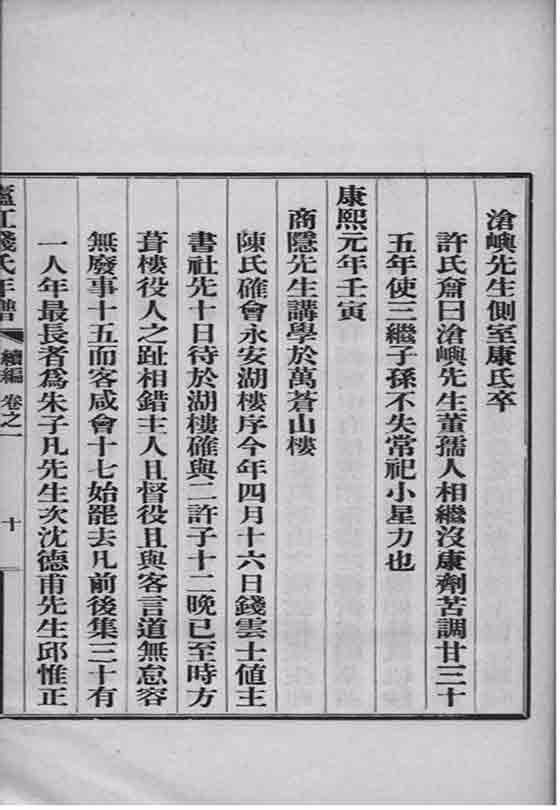 滄嶼先生側室康氏卒
許氏齋曰滄嶼先生董孺人相繼沒康劑苦調廿三十
五年使三繼子孫不失常祀小星力也
康熙元年壬寅
商隱先生講學於萬蒼山樓
陳氏確會永安湖樓序今年四月十六日錢雲士値主
書社先十日待於湖樓確與二許子十二晚已至時方
葺樓役人之趾相錯主人且督役且與客言道無怠容
無廢事十五而客咸會十七始罷去凡前後集三十有
一人年最長者爲朱子凡先生次沈德甫先生邱惟正
廬江錢氏年譜 續編 卷之一 十